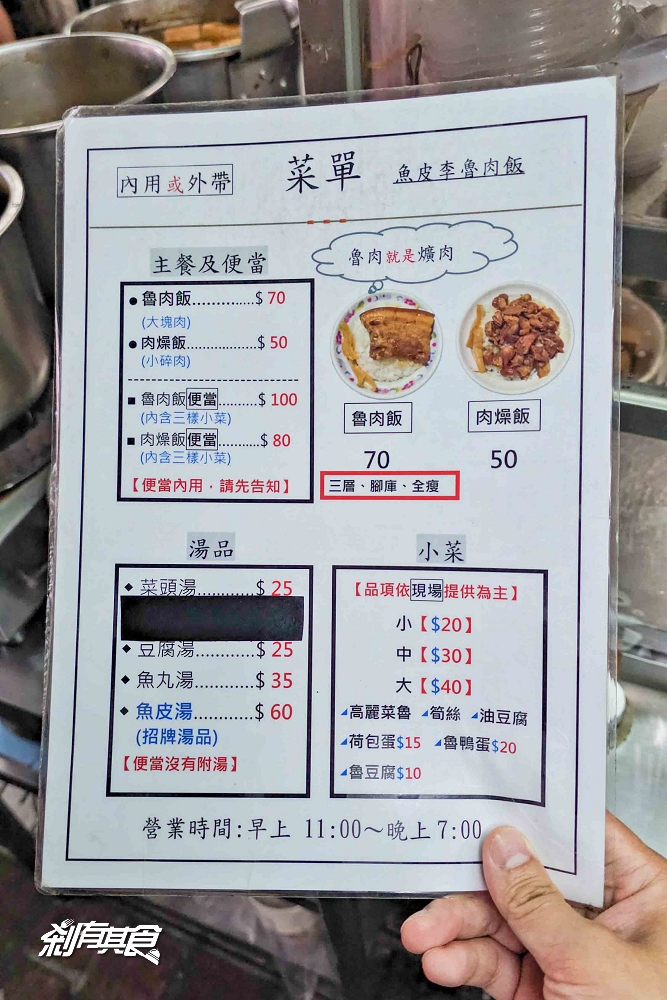 內用或外帶 菜單 魚皮李魯肉飯
魯肉就是爌肉
主餐及便當
● 魯肉飯..............$ 70
(大塊肉)
● 肉燥飯...............$ 50
(小碎肉)
■ 魯肉飯便當..........$ 100
(內含三樣小菜)
■ 肉燥飯便當..........$ 80
(內含三樣小菜)
【便當內用．請先告知】
魯肉飯 肉燥飯
70 50
三層、腳庫、全瘦
湯品
◆ 菜頭湯............$ 25
◆ 豆腐湯............$ 25
◆ 魚丸湯............$ 35
◆ 魚皮湯............$ 60
(招牌湯品)
【便當沒有附湯】
小菜
【品項依現場提供為主】
小【$20】
中【$30】
大【$40】
高麗菜魯 筍絲 油豆腐
荷包蛋$15 魯鴨蛋$20
魯豆腐$10
營業時間:早上 11:00～晚上7:00
剎有其食